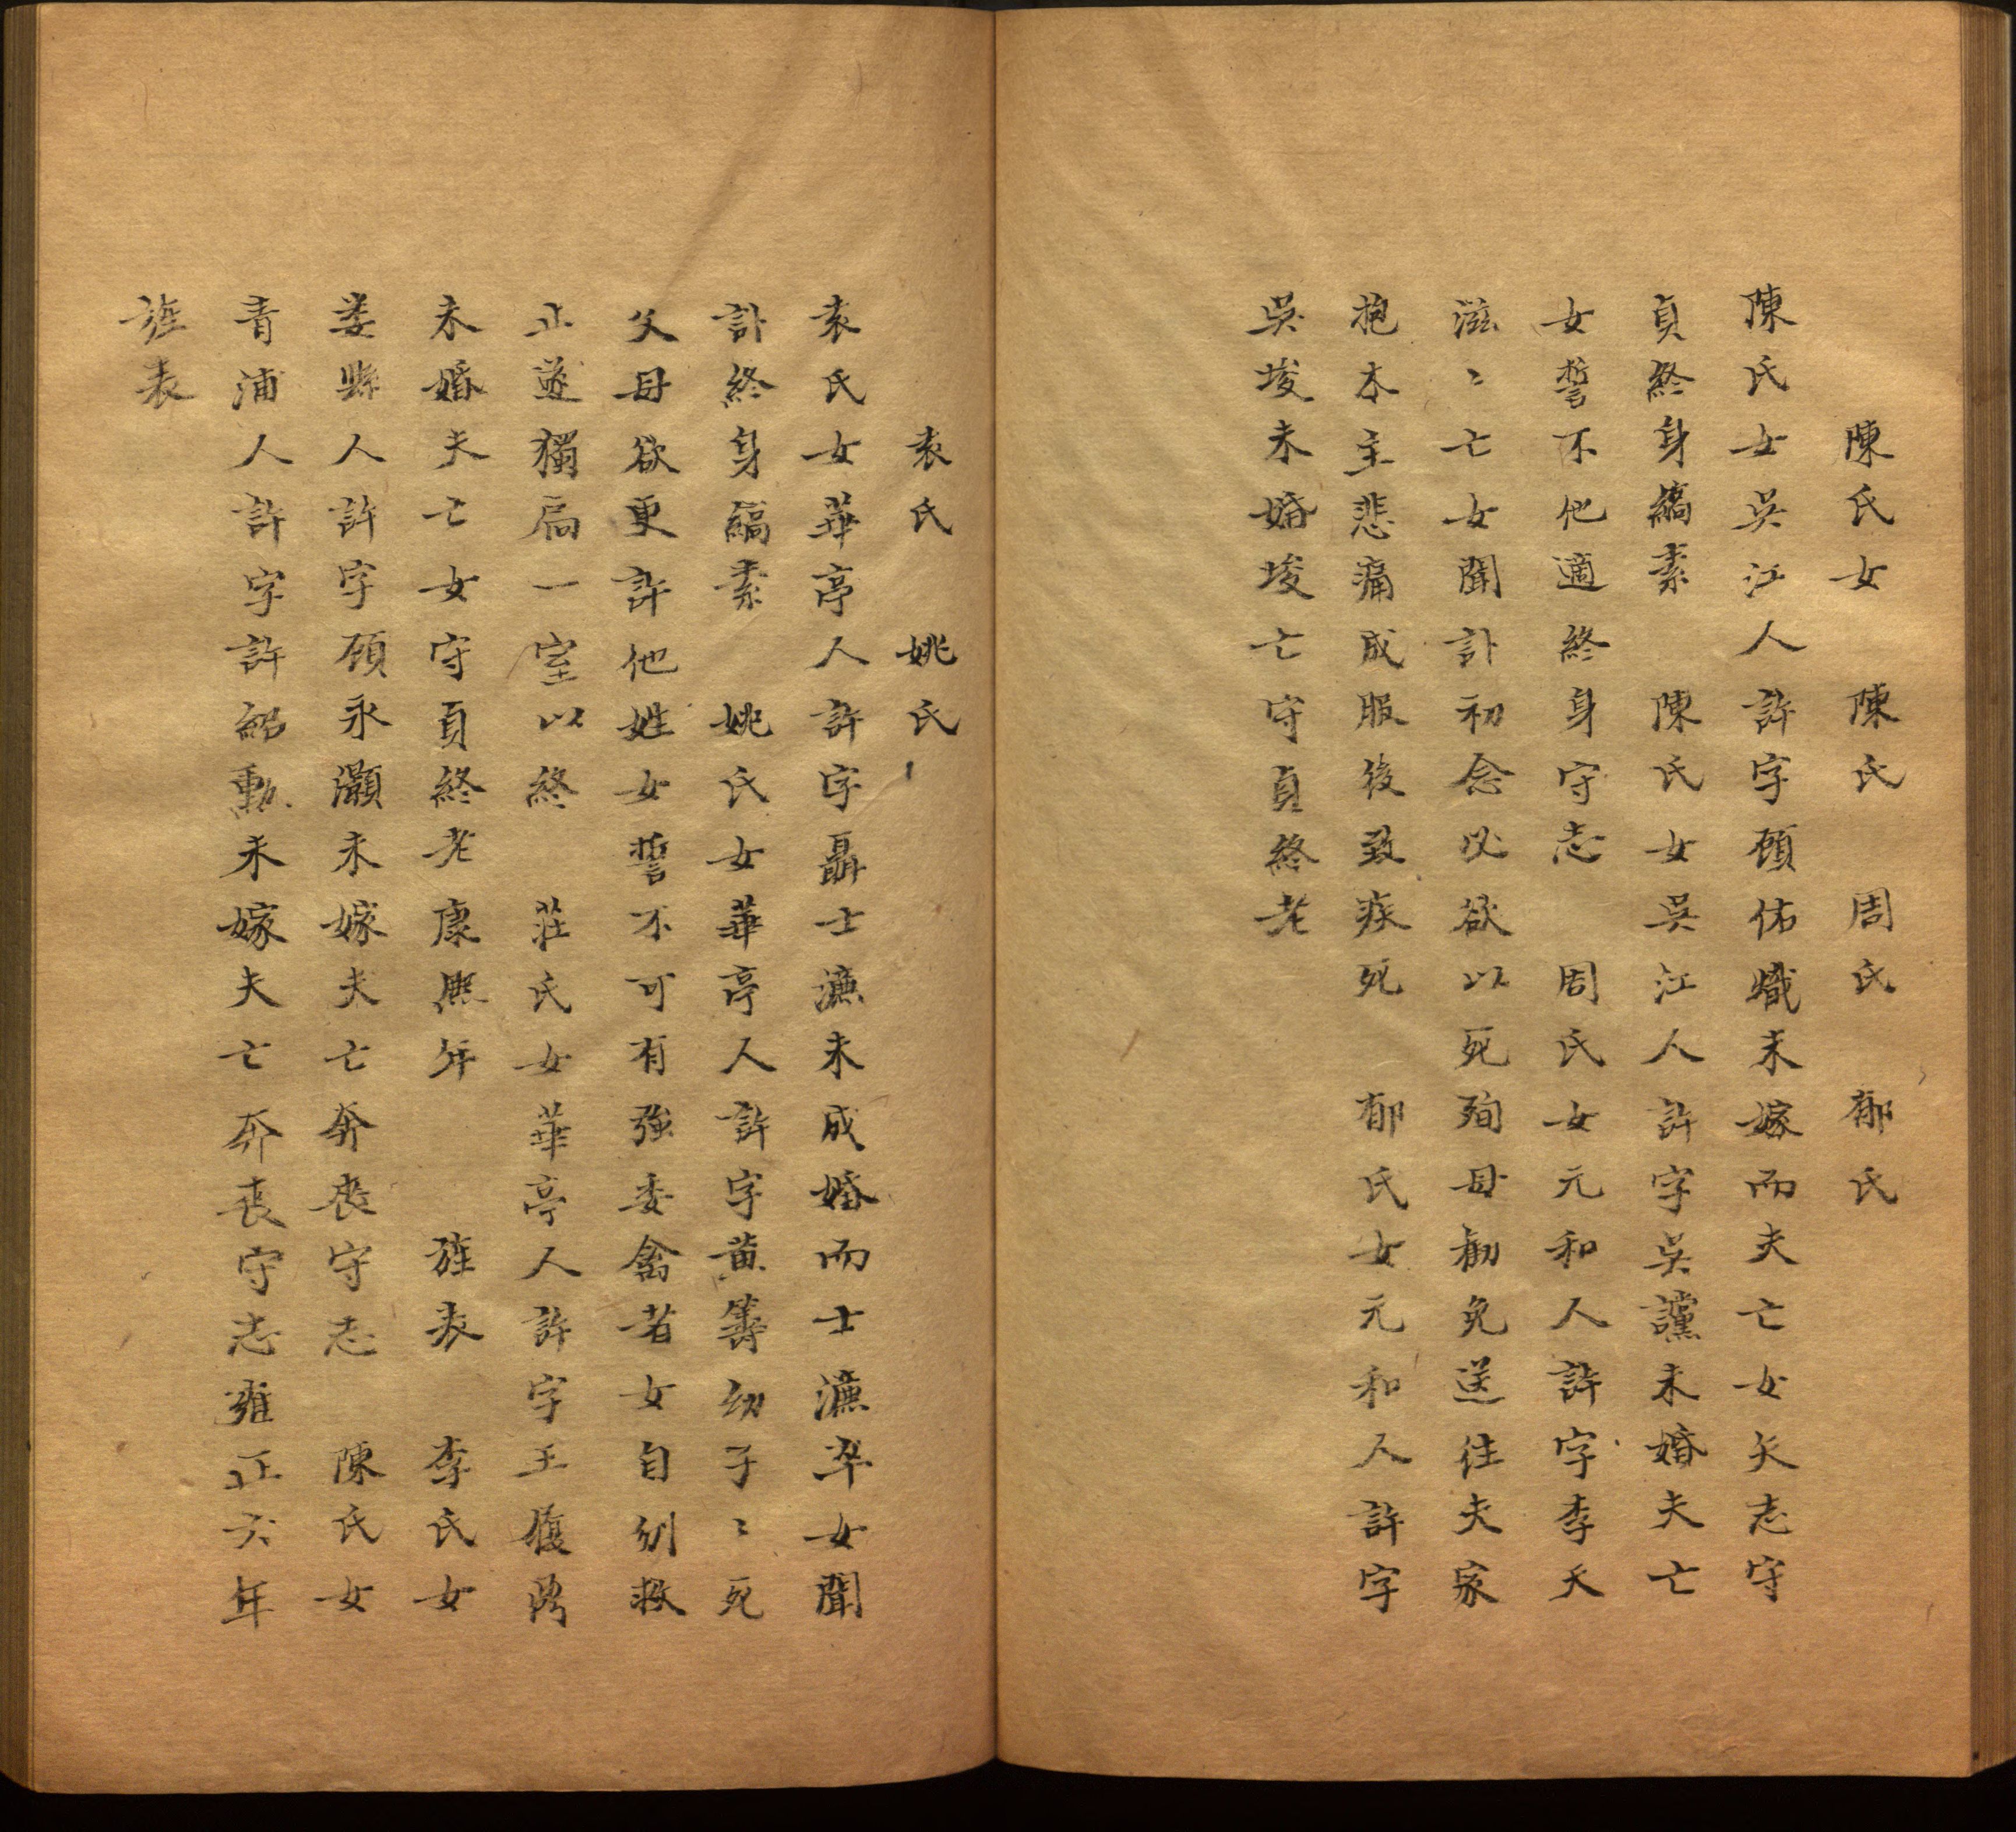 陳氏女　陳氏　周氏　郁氏
陳氏女吳江人許字顧佑幟未嫁而夫亡女矢志守
貞終身縞素　陳氏女吳江人許字吳讜未婚夫亡
女誓不他適終身守志　周氏女元和人許字李天
滋〻亡女聞訃初念必欲以死殉母勸免送往夫家
抱本主悲痛成服後致疾死　郁氏女元和人許字
吳埈未婚埈亡守貞終老
袁氏　姚氏
袁氏女華亭人許字聶士濂未成婚而士濂卒女聞
訃終身縞素　姚氏女華亭人許字黃籌幼子〻死
父母欲更許他姓女誓不可有強委禽者女自刎救
止遂獨扃一室以終　莊氏女華亭人許字王復
未婚夫亡女守貞終老康熙年　旌表　李氏女
婁縣人許字顧永灝未嫁夫亡奔喪守志　陳氏女
青浦人許字許紹勳未嫁夫亡奔喪守志雍正六年
旌表